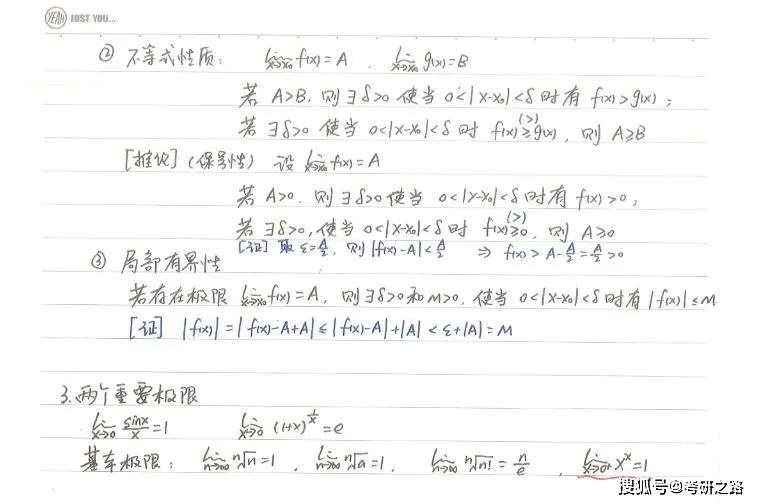 YEAH JUST YOU...
② 不等式性质: lim_{x→x₀} f(x)=A , lim_{x→x₀} g(x)=B
若 A>B, 则∃δ>0 使当 0<|x-x₀|<δ 时有 f(x)>g(x) ;
若∃δ>0 使当 0<|x-x₀|<δ 时 f(x)≥(>)g(x), 则 A≥B
[推论] (保号性) 设 lim_{x→x₀} f(x)=A
若 A>0, 则∃δ>0 使当 0<|x-x₀|<δ 时有 f(x)>0 ;
若∃δ>0, 使当 0<|x-x₀|<δ 时 f(x)≥(>)0, 则 A≥0
[证] 取 ε=A/2, 则 |f(x)-A|<A/2 ⇒ f(x)>A-A/2=A/2>0
③ 局部有界性
若存在极限 lim_{x→x₀} f(x)=A, 则∃δ>0和M>0, 使当 0<|x-x₀|<δ 时有 |f(x)|≤M
[证] |f(x)|=|f(x)-A+A|≤|f(x)-A|+|A|<ε+|A|=M
3.两个重要极限
lim_{x→0} sinx/x=1 lim_{x→0} (1+x)^{1/x}=e
基本极限: lim_{n→∞} ⁿ√n=1 , lim_{n→∞} ⁿ√a=1, lim_{n→∞} ⁿ√n! = n/e , lim_{x→0⁺} x^x=1
搜狐号@考研之路